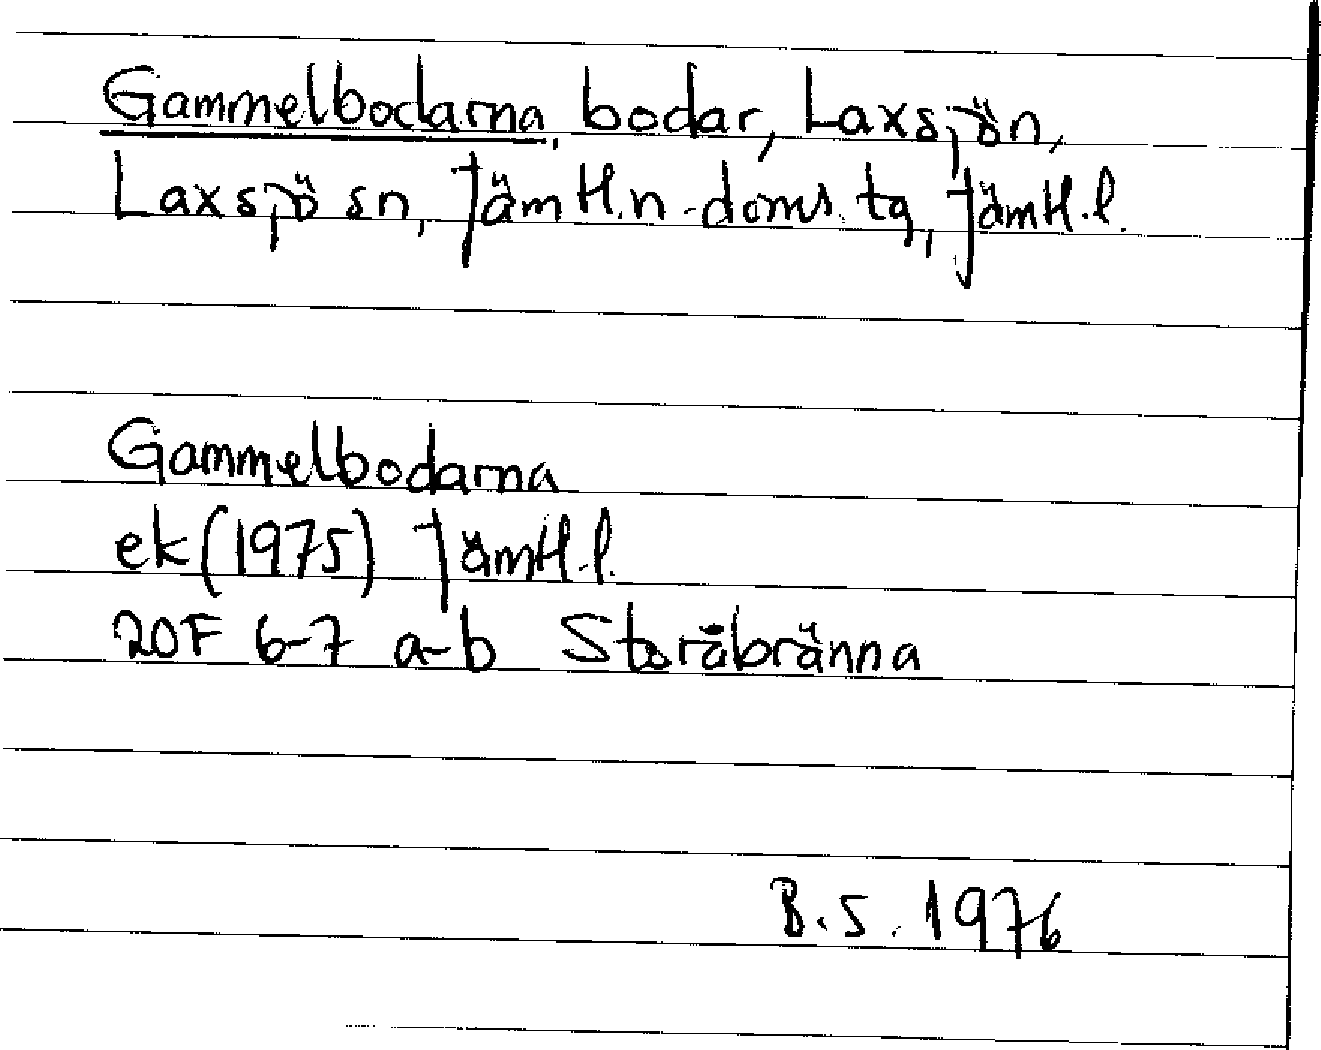 Gammelbodarna, bodar, Laxsjön,
Laxsjö sn, Jämtl.n.doms.tg, Jämtl.l.
Gammelbodarna
ek (1975) Jämtl.l.
20F 6-7 a-b Storåbränna
B.S. 1976